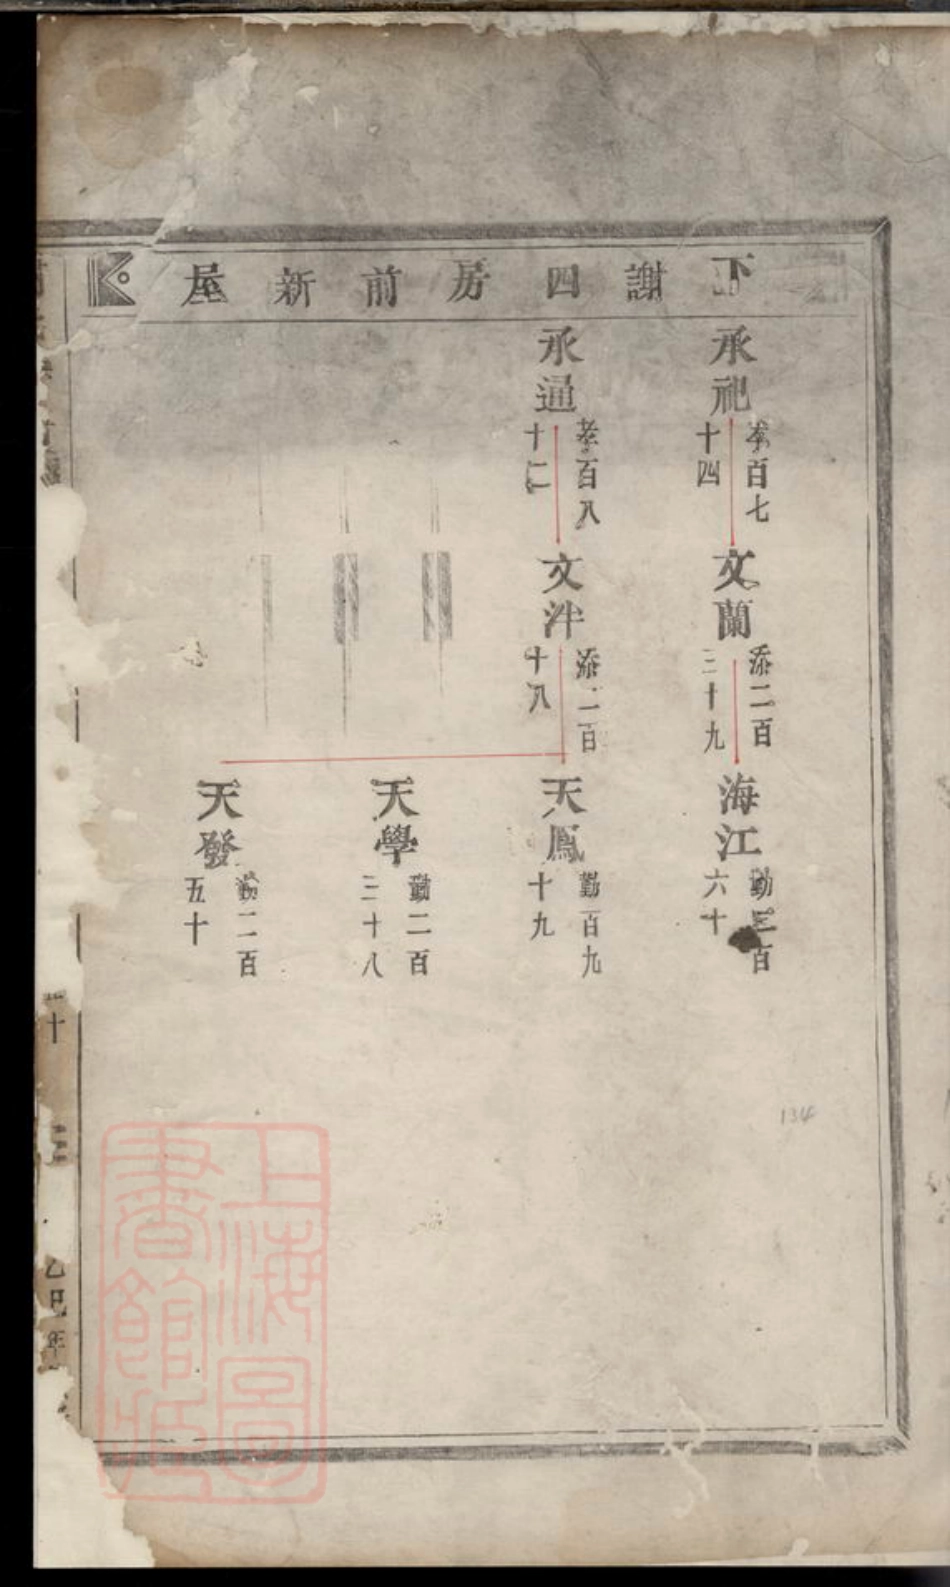 下謝四房前新屋
承祀
孝百七
十四
文蘭
添二百
三十九
海江
勤三百
六十
承通
孝百八
十二
文泮
添二百
十八
天鳳
勤百九
十九
天學
勤二百
三十八
天發
勤二百
五十
十三
乙巳年
134
上海圖書館藏